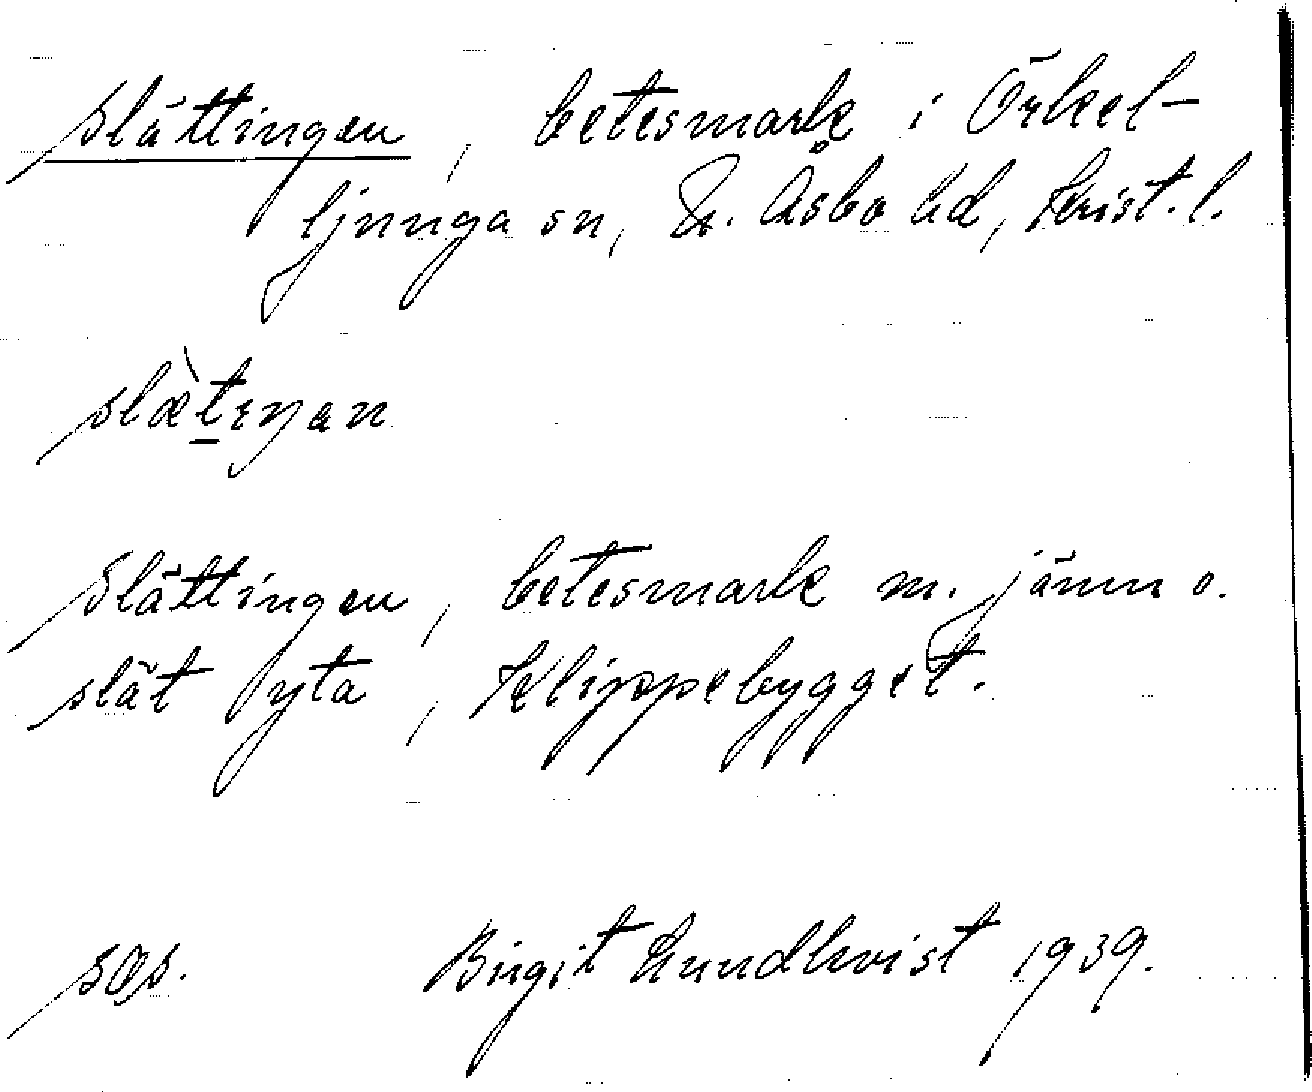 Slättingen, betesmark i Örkel-
ljunga sn, N. Åsbo hd, Krist. l.
slæ̀t̲ɪŋan
Slättingen, betesmark m. jämn o.
slät yta, Klippebygget.
sŏs. Birgit Lundkvist 1939.